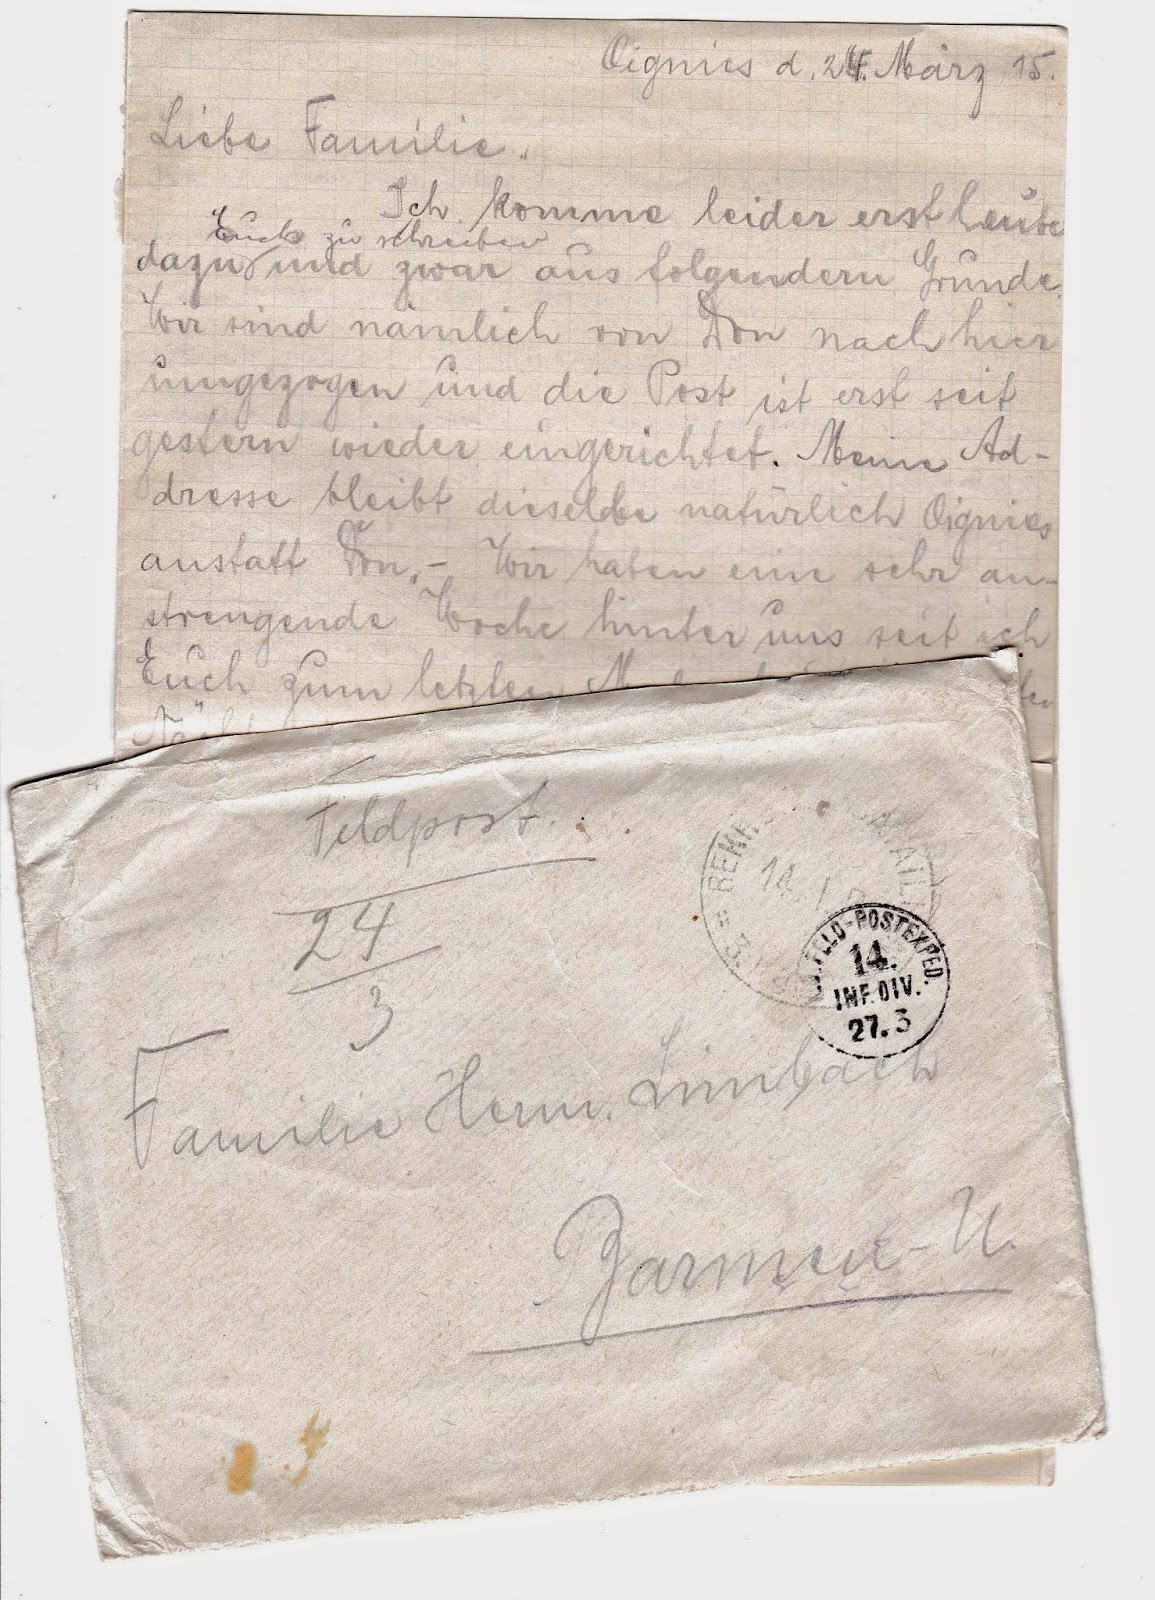 Oignies d. 24. März 15.
Liebe Familie.
Ich komme leider erst heute
Euch zu schreiben
dazu und zwar aus folgendem Grunde.
Wir sind nämlich von Don nach hier
umgezogen und die Post ist erst seit
gestern wieder eingerichtet. Meine Ad-
dresse bleibt dieselbe natürlich Oignies
anstatt Don.- Wir haben eine sehr an-
strengende Woche hinter uns seit ich
Euch zum letzten
Feldpost.
24
3
14.
FELD-POSTEXPED.
14.
INF. DIV.
27.3
Familie Herm. Limbach
Barmen-U.